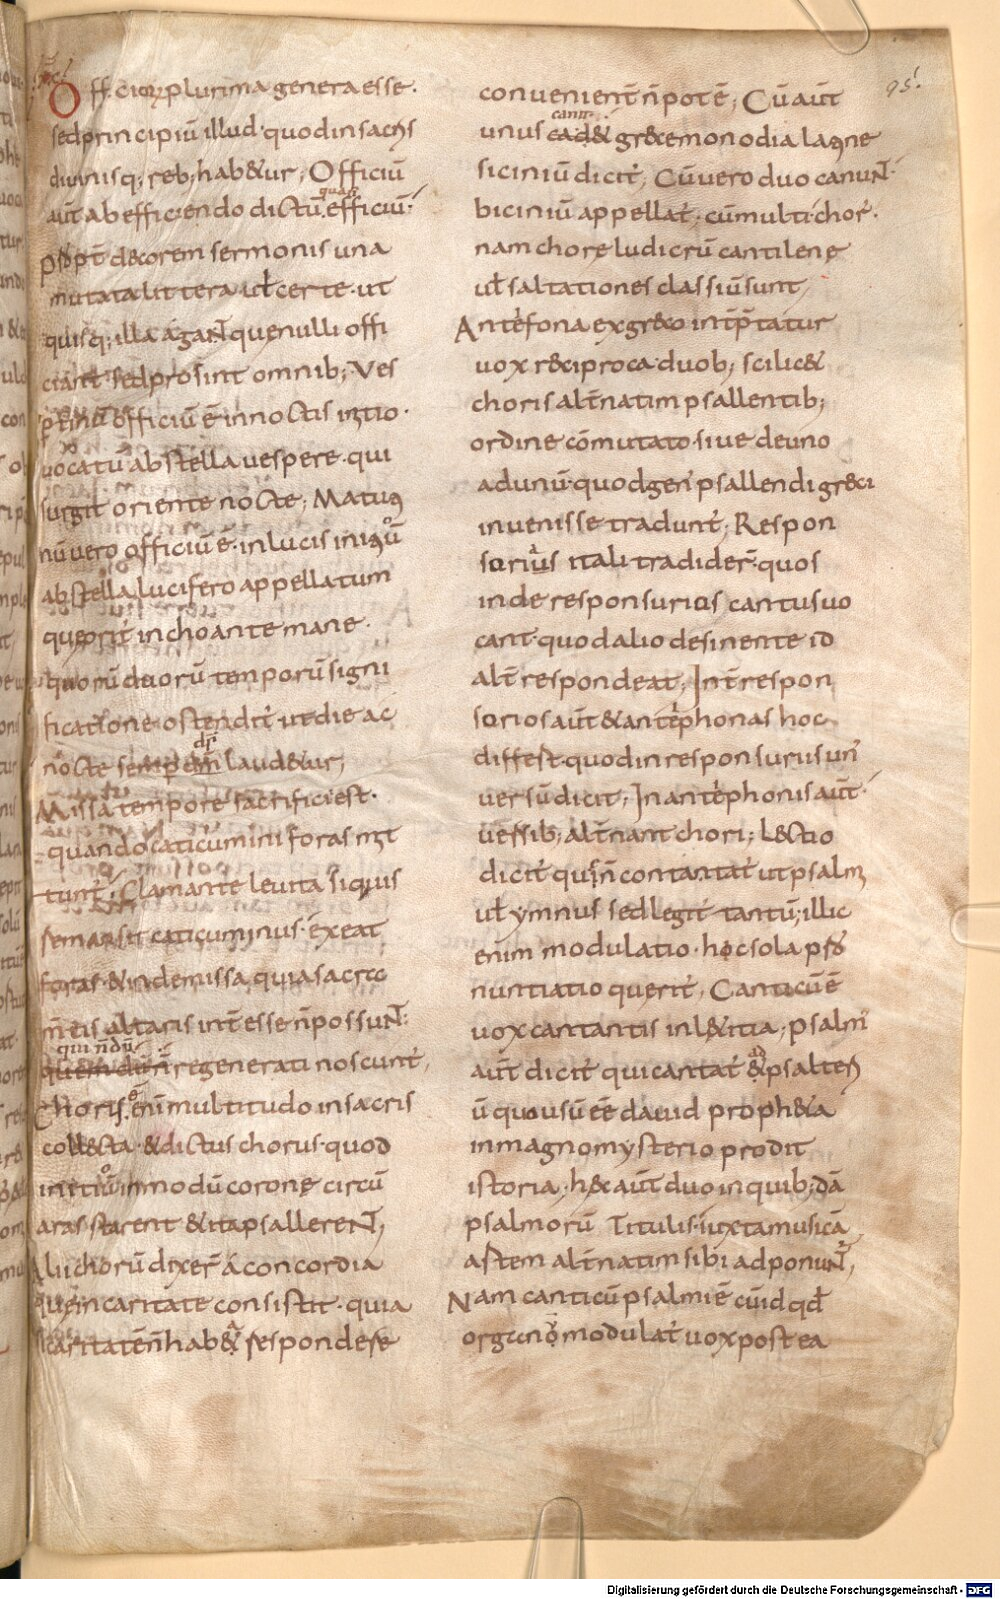 Officioꝝ plurima genera esse.
sed principiū illud quod in sacris
diuinisq; reb; hab&ur; Officiū
aut̄ ab efficiendo dictū quasi efficiū.
ppt̄ decorem sermonis una
mutata littera ul̄ certe ut
quisq; illa agaNT que nulli offi
ciant sed prosint omnib; Ves
ptinū officiū ē in noctis initio.
uocatū ab stella uespere qui
surgit oriente nocte; Matuti
nū uero officiū ē in lucis initio
ab stella lucifero appellatum
que orit̄ inchoante mane.
quorū duorū temporū signi
ficatione ostendit̄ ut die ac
nocte semp laud&ur;
Missa tempore sacrificii est.
quando caticumini foras mit
tunt̄. Clamante leuita siquis
remansit caticuminus exeat
foras & inde missa quia sacra
m̄tis altaris int̄esse n̄ possuNT:
qui n̄dū regenerati noscunt̄,
Choris enī multitudo in sacris
collecta & dictus chorus quod
initio in modū corone circū
aras starent & ita psallereNT,
Alii chorū dixer̄ a concordia
que in caritate consistit quia
si caritatē n̄ habeat respondere
95.
conuenient̄ n̄ potē; Cū aut̄
unus canit grece monodia latine
siciniū dicit̄; Cū uero duo canuNT.
biciniū appellat̄ cū multi chor̄.
nam chore ludicrū cantilene
ul̄ saltationes classiū sunt
Antefona ex greco int̄p̄tatur
uox reciproca duob; scilic&
choris alt̄natim psallentib;
ordine cōmutato siue de uno
ad unū quod gen̄ psallendi greci
inuenisse tradunt̄; Respon
sorius itali tradider̄ quos
inde responsurios cantus uo
cant quod alio desinente id
alt̄ respondeat; Int̄ respon
sorios aut̄ & antephonas hoc
differt quod in responsuriis un̄
uersū dicit; In antephonis aut̄.
uersib; alt̄nant chori; Lectio
dicit̄ qu n̄ cantat̄ ut psalm̄
ul̄ ymnus sed legit̄ tantū; illic
enim modulatio hoc sola pro
nuntiatio querit̄; Canticū ē
uox cantantis in l&itia; psalm̄
aut̄ dicit̄ qui cantat̄ ad psalteriū
ū quo usū ēē dauid proph&a
in magno mysterio prodit
istoria; hec aut̄ duo in quib; dā
psalmorū Titulis iuxta musicā
astem alt̄natim sibi adponuNT;
Nam canticū psalmi ē cū id qd̄
organo modulat̄ uox postea
Digitalisierung gefördert durch die Deutsche Forschungsgemeinschaft - DFG